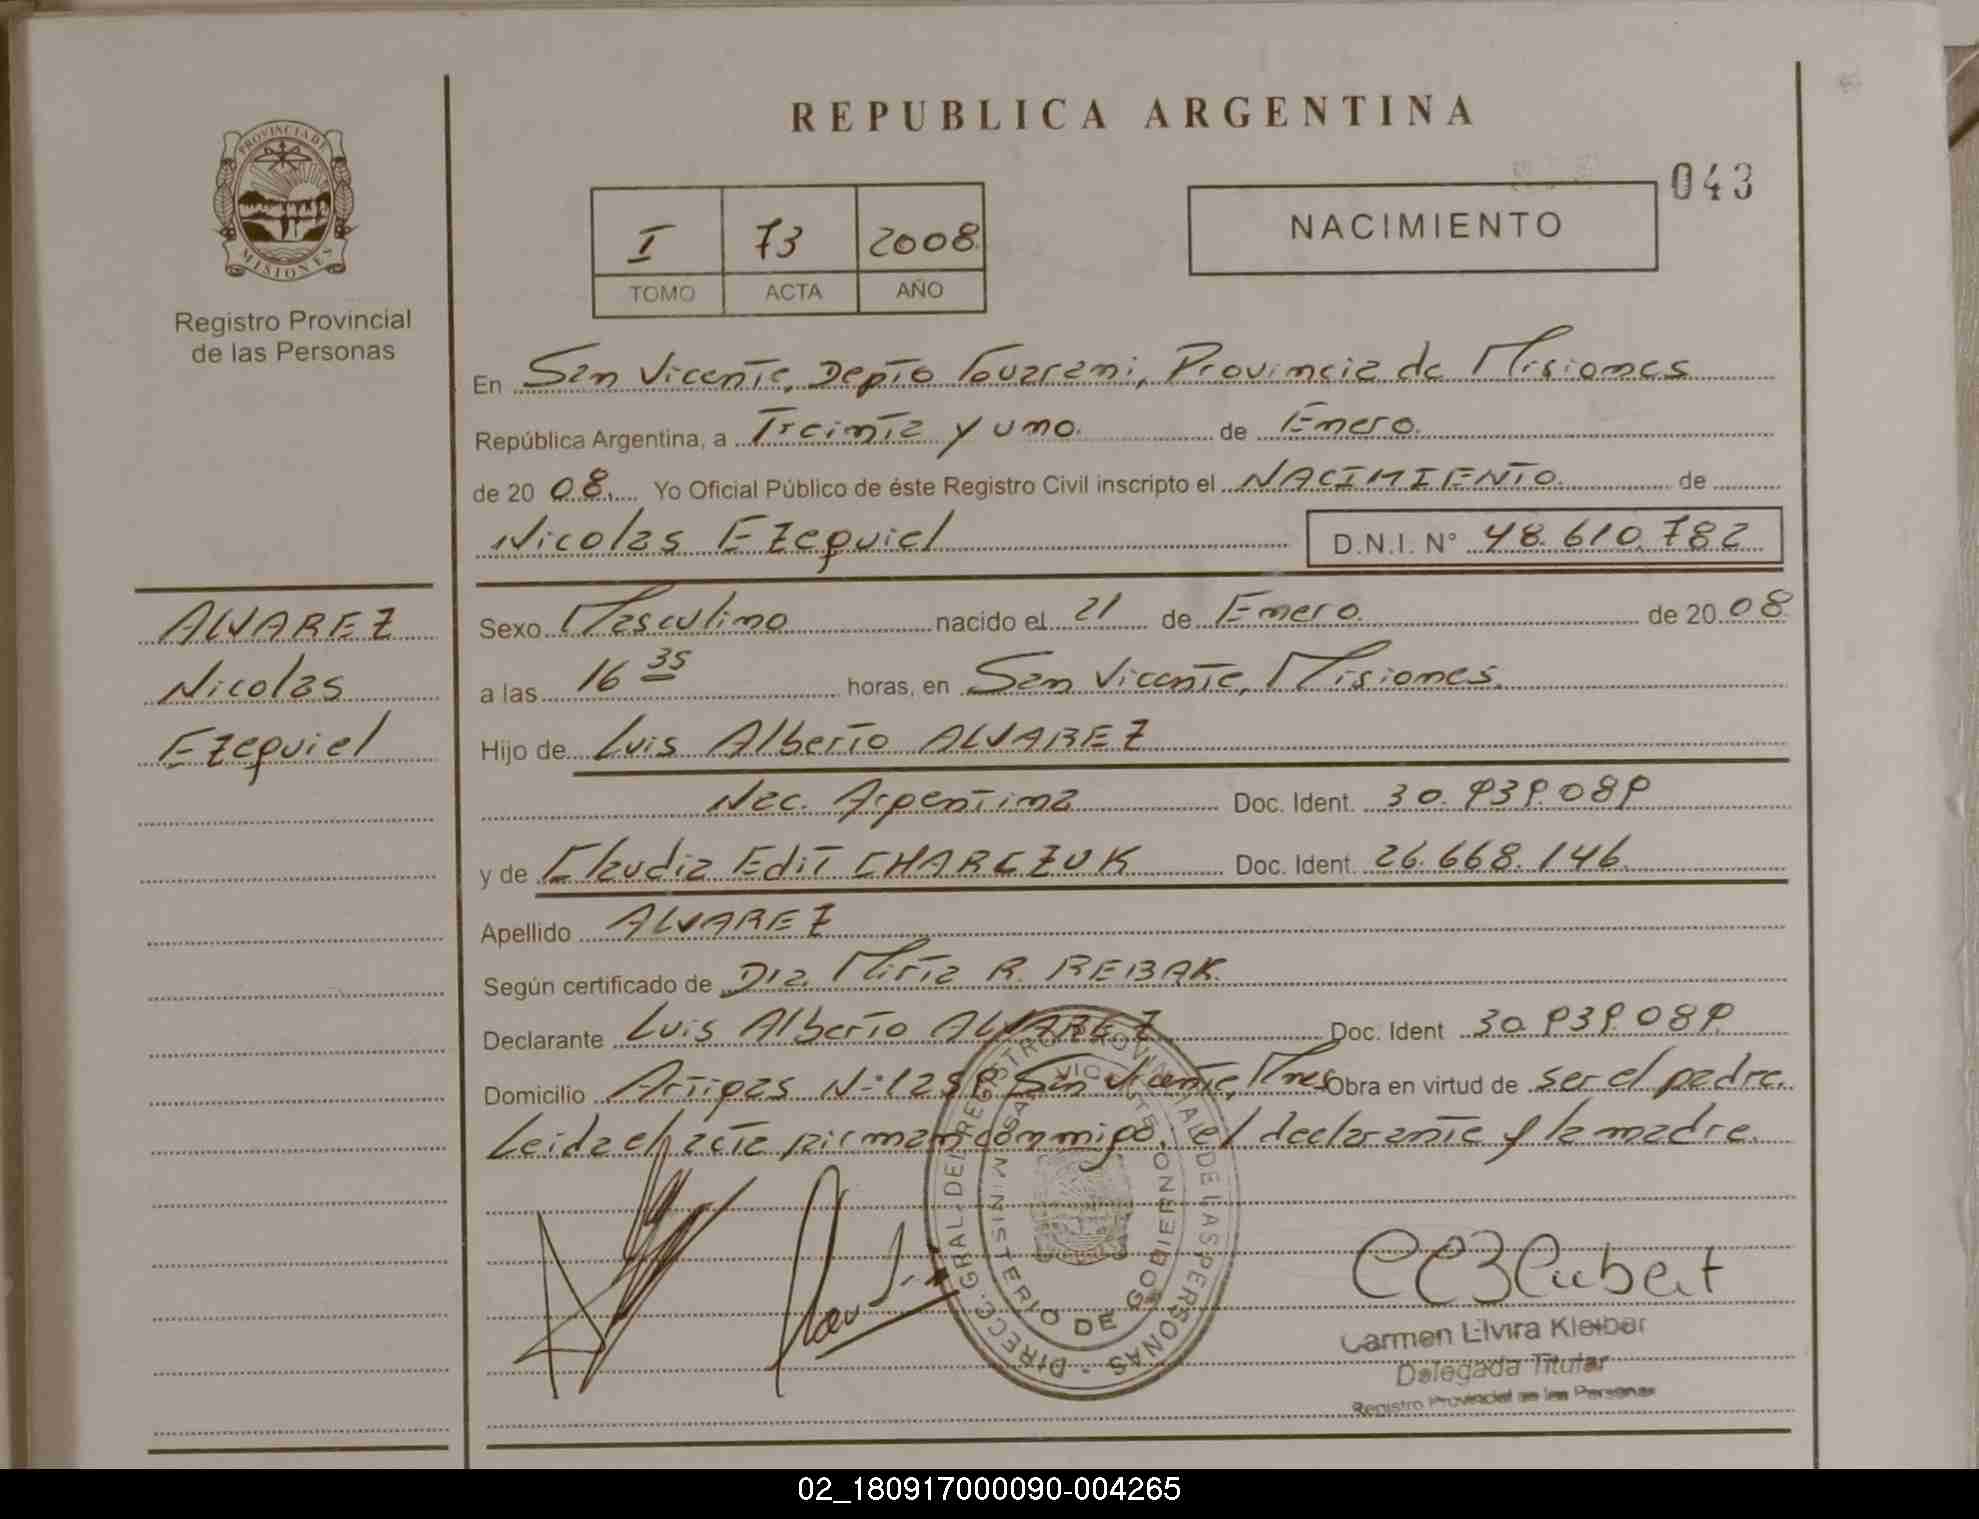 REPUBLICA ARGENTINA
PROVINCIA DE
MISIONES
Registro Provincial
de las Personas
043
I 73 2008
TOMO ACTA AÑO
NACIMIENTO
En San Vicente, Depto Guarani, Provincia de Misiones
República Argentina, a Treinta y uno. de Enero.
de 20 08. Yo Oficial Público de éste Registro Civil inscripto el NACIMIENTO. de
Nicolas Ezequiel D.N.I. N° 48.610.782
ALVAREZ
Nicolas
Ezequiel
Sexo Masculino nacido el 21 de Enero. de 20 08
a las 16 35 horas, en San Vicente, Misiones.
Hijo de Luis Alberto ALVAREZ
Nac. Argentina Doc. Ident. 30.939.089
y de Claudia Edit CHARCZUK Doc. Ident. 26.668.146
Apellido ALVAREZ
Según certificado de Dra. Mirta R. REBAK
Declarante Luis Alberto ALVAREZ Doc. Ident 30.939.089
Domicilio Artigas N° San Vicente, Mnes Obra en virtud de ser el padre.
Leida el acta firman conmigo, el declarante y la madre.
DIRECC. GRAL. DEL REGISTRO PROVINCIAL DE LAS PERSONAS
MINISTERIO DE GOBIERNO
SAN VICENTE
Carmen Elvira Kleiber
Delegada Titular
Registro Provincial de las Personas
02_180917000090-004265